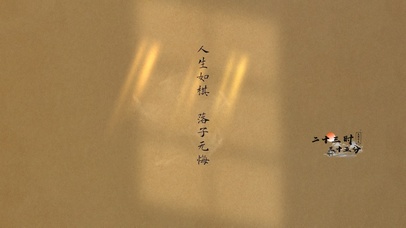 人生如棋 落子无悔
二十三时
三十五分